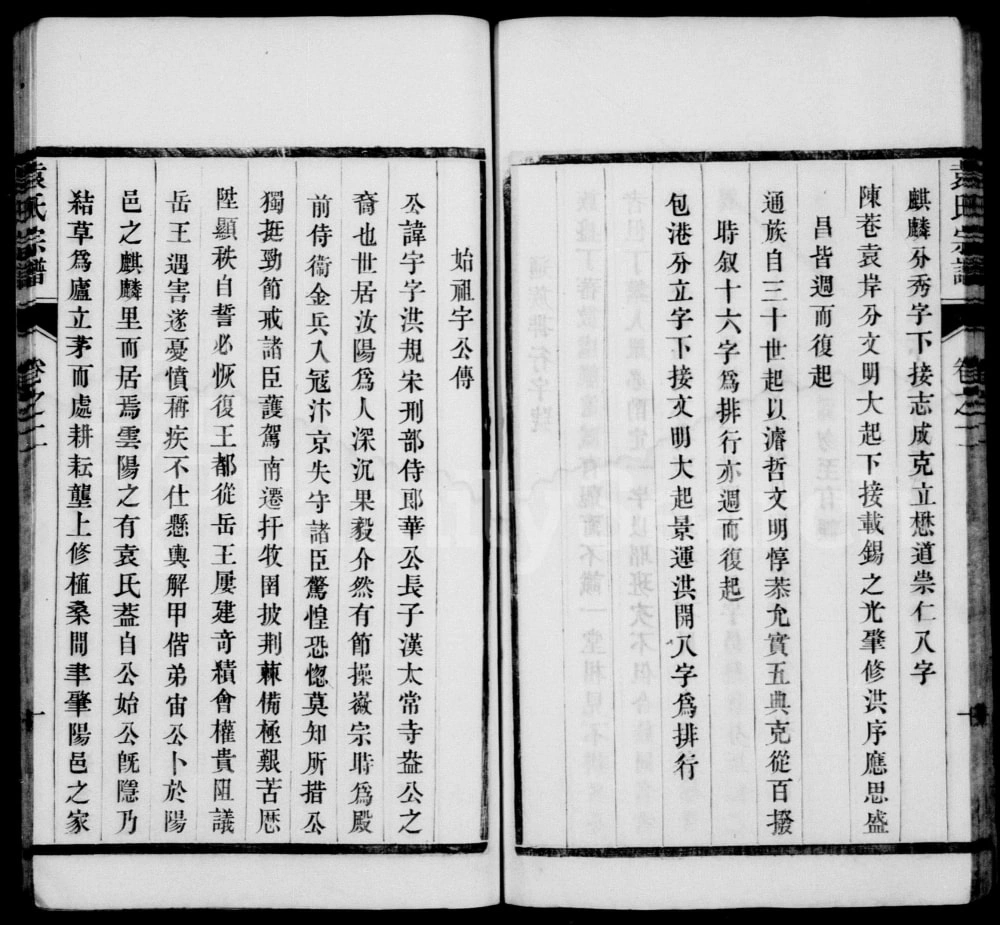 袁氏宗譜
卷之二
麒麟分秀字下接志成克立懋道崇仁八字
陳巷袁岸分文明大起下接載錫之光肇修洪序應思盛
昌皆週而復起
通族自三十世起以濬哲文明惇恭允實五典克從百揆
時叙十六字爲排行亦週而復起
包港分立字下接文明大起景運洪開八字爲排行
始祖宇公傳
公諱宇字洪規宋刑部侍郎華公長子漢太常寺盎公之
裔也世居汝陽爲人深沉果毅介然有節操徽宗時爲殿
前侍衛金兵入冦汴京失守諸臣驚惶恐惚莫知所措公
獨挺勁節戒諸臣護駕南遷扞牧圉披荆棘備極艱苦厯
陞顯秩自誓必恢復王都從岳王屢建竒績會權貴阻議
岳王遇害遂憂憤稱疾不仕懸輿解甲偕弟宙公卜於陽
邑之麒麟里而居焉雲陽之有袁氏葢自公始公旣隱乃
結草爲廬立茅而處耕耘壟上修植桑間聿肇陽邑之家
袁氏宗譜
卷之二
一